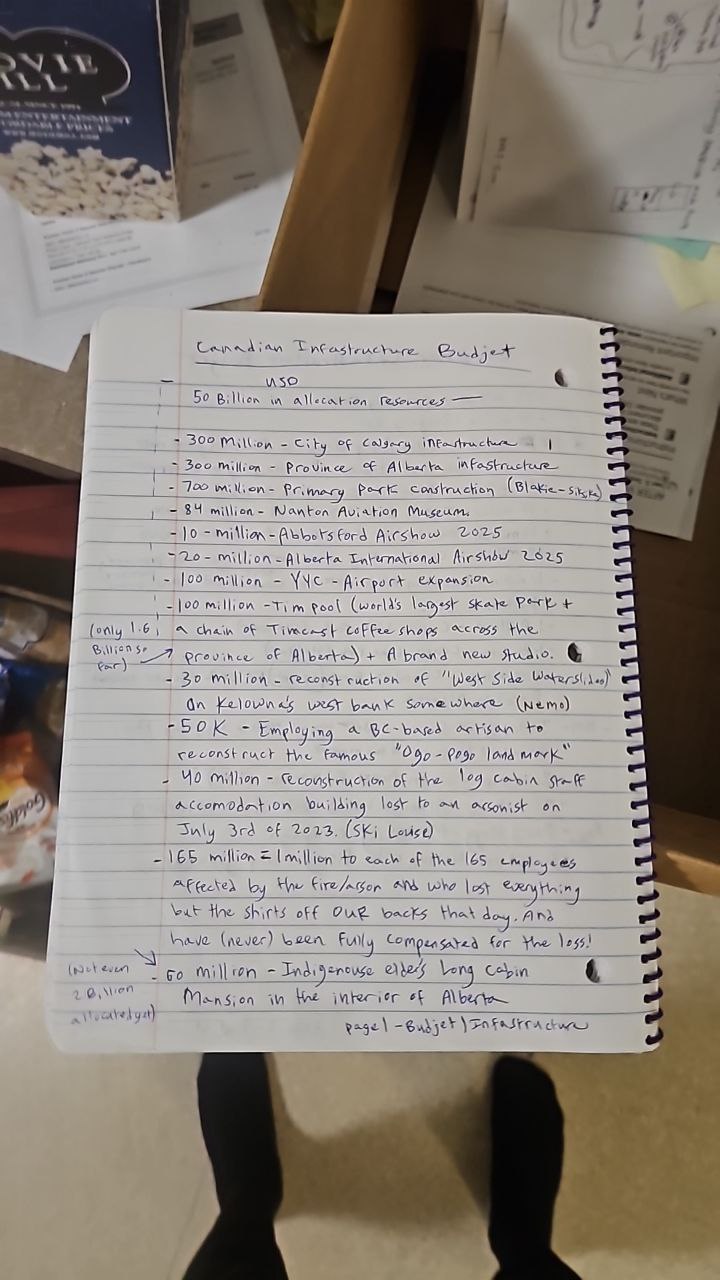 OVIE
ILL
ENTERTAINMENT
ORDABLE PRICES
Canadian Infastructure Budjet
USD
50 Billion in allocation resources —
- 300 Million - City of Calgary infastructure - 1
- 300 million - Province of Alberta infastructure
- 700 million - Primary Park construction (Blakie-Siksika)
- 84 million - Nanton Aviation Museum.
- 10 - million - Abbotsford Airshow 2025
- 20 - million - Alberta International Airshow 2025
- 100 million - YYC - Airport expansion
- 100 million - Tim pool (world's largest skate park +
a chain of Timcast coffee shops across the
province of Alberta) + A brand new studio.
(only 1.6
Billion so
far)
- 30 million - reconstruction of "West Side Waterslides"
On Kelowna's west bank somewhere (Nemo)
- 50K - Employing a BC-based artisan to
reconstruct the famous "Ogo-Pogo land mark"
- 40 million - reconstruction of the log cabin staff
accomodation building lost to an arsonist on
July 3rd of 2023. (Ski Louise)
- 165 million = 1 million to each of the 165 employees
affected by the fire/arson and who lost everything
but the shirts off OUR backs that day. And
have (never) been fully compensated for the loss!
(Not even
2 Billion
allocated yet)
- 60 million - Indigenouse elder's Long Cabin
Mansion in the interior of Alberta
page 1 - Budjet / Infastructure
Goldfis